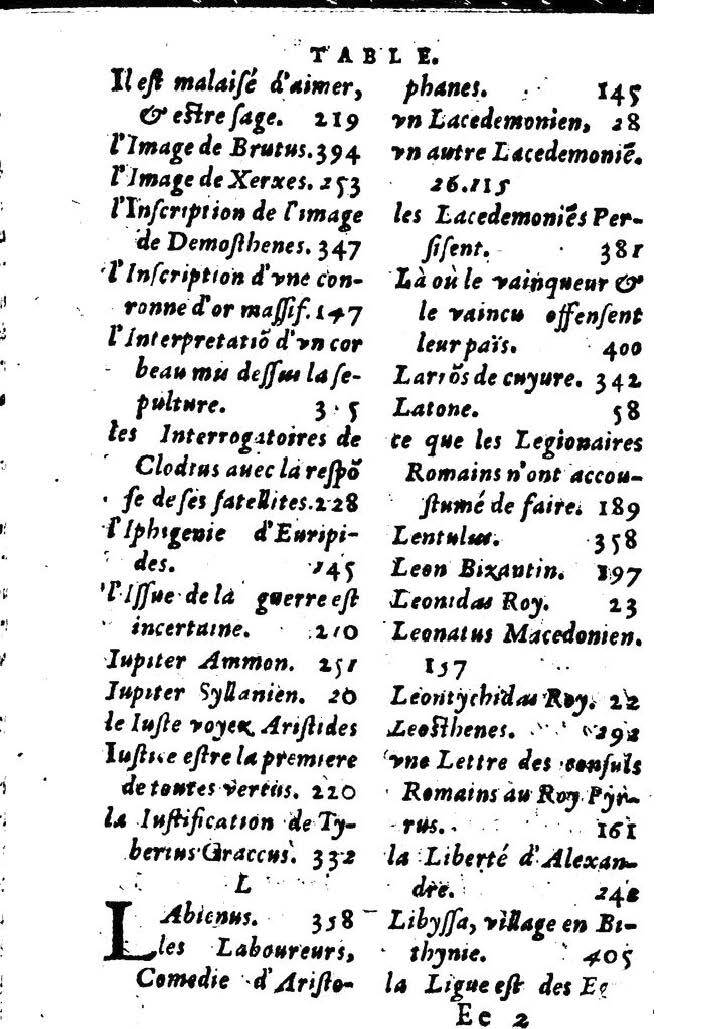 TABLE.
Il est malaisé d'aimer,
& estre sage. 219
l'Image de Brutus. 394
l'Image de Xerxes. 253
l'Inscription de l'image
de Demosthenes. 347
l'Inscription d'vne cou-
ronne d'or massif. 147
l'Interpretatiõ d'vn cor
beau mu dessus la se-
pulture.
les Interrogatoires de
Clodius auec la respõ
se de ses satellites. 228
l'Iphigenie d'Euripi-
des. 145
l'Issue de la guerre est
incertaine. 210
Iupiter Ammon. 251
Iupiter Syllanien. 20
le Iuste voyez Aristides
Iustice estre la premiere
de toutes vertus. 220
la Iustification de Ty-
berius Graccus. 332
L
LAbienus. 358
les Laboureurs,
Comedie d'Aristo-
phanes. 145
vn Lacedemonien, 28
vn autre Lacedemoniẽ.
26.115
les Lacedemoniẽs Per-
sisent. 381
Là où le vainqueur &
le vaincu offensent
leur païs. 400
Larrõs de cuyure. 342
Latone. 58
ce que les Legionaires
Romains n'ont accou-
stumé de faire. 189
Lentulus. 358
Leon Bizantin. 197
Leonidas Roy. 23
Leonatus Macedonien.
157
Leontychidas Roy. 22
Leosthenes. 292
vne Lettre des consuls
Romains au Roy Pyr-
rus. 161
la Liberté d'Alexan-
dre.
Libyssa, village en Bi-
thynie. 405
la Ligue est des Ee
Ee 2